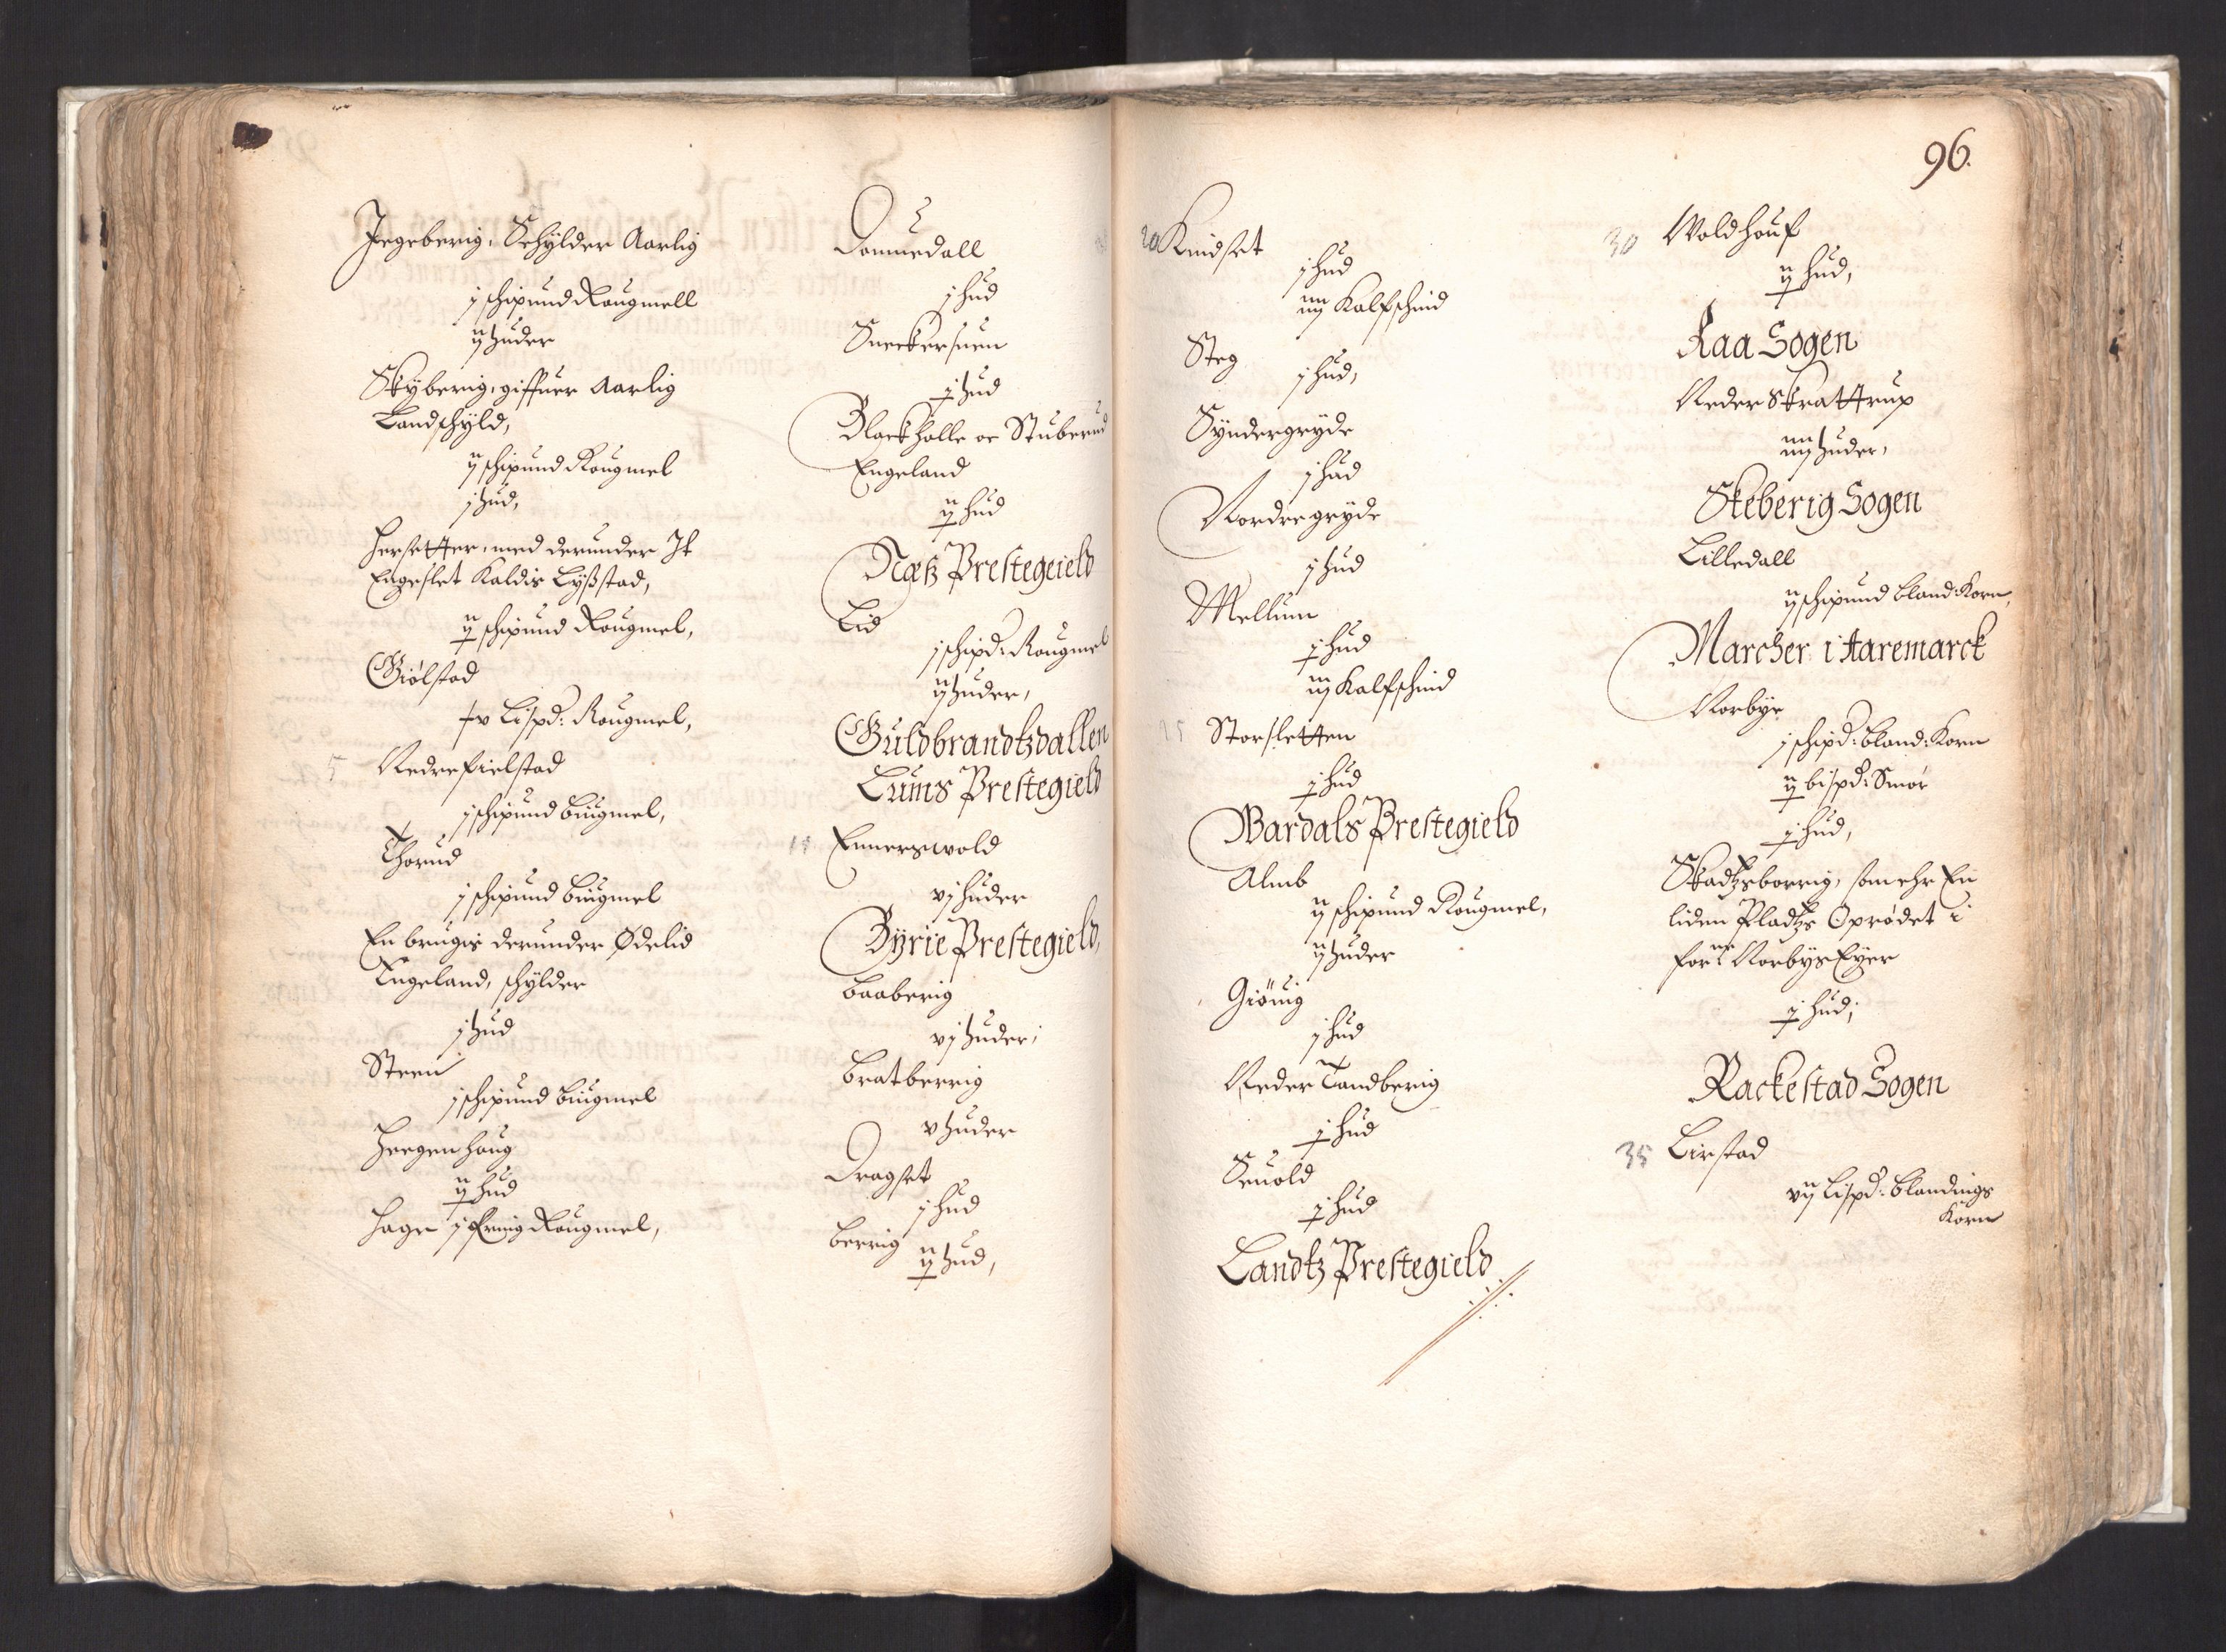 Jegeberig, Schylder Aarlig
j schipund Rougmell
ij huder
Skyberig, giffuer Aarlig
Landschyld,
ij schipund Rougmel
j hud,
Hersetter, med derunder It
Engeslet Kaldis Lysstad,
ij schipund Rougmel,
Giölstad
xv Lispd: Rougmel,
5 Nedrefielstad
j schipund biugmel,
Thorud
j schipund biugmel
En brugis derunder Ødelid
Engeland, schylder
j hud
Steen
j schipund biugmel
Hergenhoug
ij hud
Hage j fering Rougmel,
Domnedall
j hud
Sneckersuen
j hud
Blackholle oc Stuberud
Engeland
ij hud
Næs Prestegeield
Lid
j schipd: Rougmel
ij huder,
Guldbrandtzdallen
Lums Prestegield
15 Ennerswold
vj huder
Byrie Prestegield,
Baaberig
vj huder,
Bratberrig
v huder
Dragset
j hud
Berrig ij hud,
96.
20 Kindset
j hud
iiij Kalfschind
Steg j hud,
Syndergryde
j hud
Nordregryde
j hud
Mellum
j hud
iij Kalfschind
25 Storsletten
j hud
Wardals Prestegield
Almb
ij schipund Rougmel,
ij huder
Giönig
j hud
Neder Tandberig
j hud
Seuold
j hud
Landtz Prestegield
30 Woldhouf
ij hud,
Raa Sogen
Neder Skrattrup
iiij huder,
Skeberig Sogen
Lilledall
ij schipund bland: Korn,
Marcher i Aaremarck
Norbye
j schipd: bland: Korn
ij bispd: Smör
j hud,
Skadtzborrig, som ehr En
liden Pladtz Oprödet i
forne Norbys Eyer
j hud,
Rackestad Sogen
35 Lirstad
vij Lispd: blandings
Korn